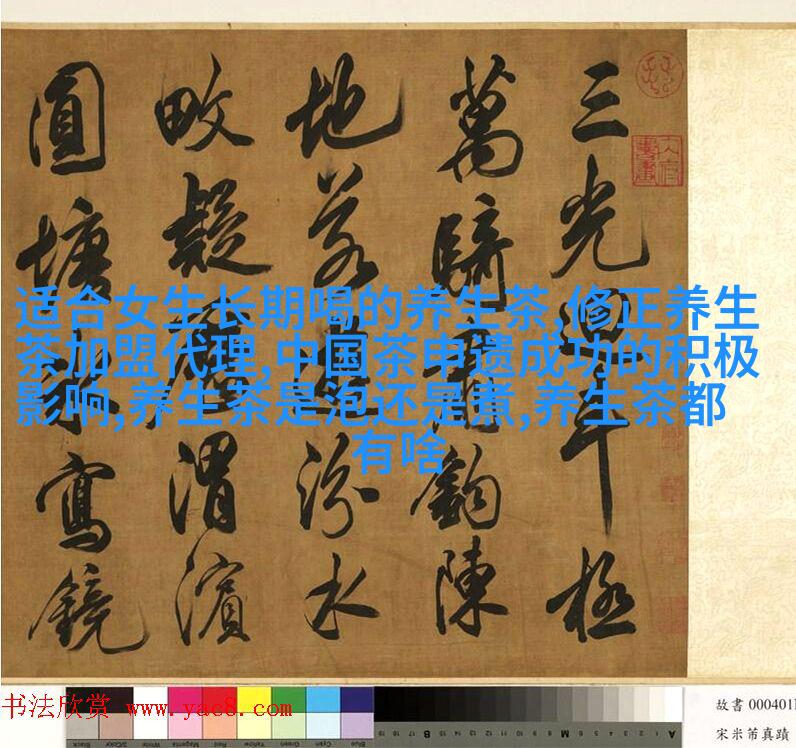 三光斗極
萬騎鈎陳
地若汾水
畋疑渭濱
圓塘冰寫鏡
适合女生长期喝的养生茶,修正养生
茶加盟代理,中国茶申遗成功的积极
影响,养生茶是泡还是煮,养生茶都
有啥
书法欣赏 www.yac8.com
故書 000401
宋米芾真蹟